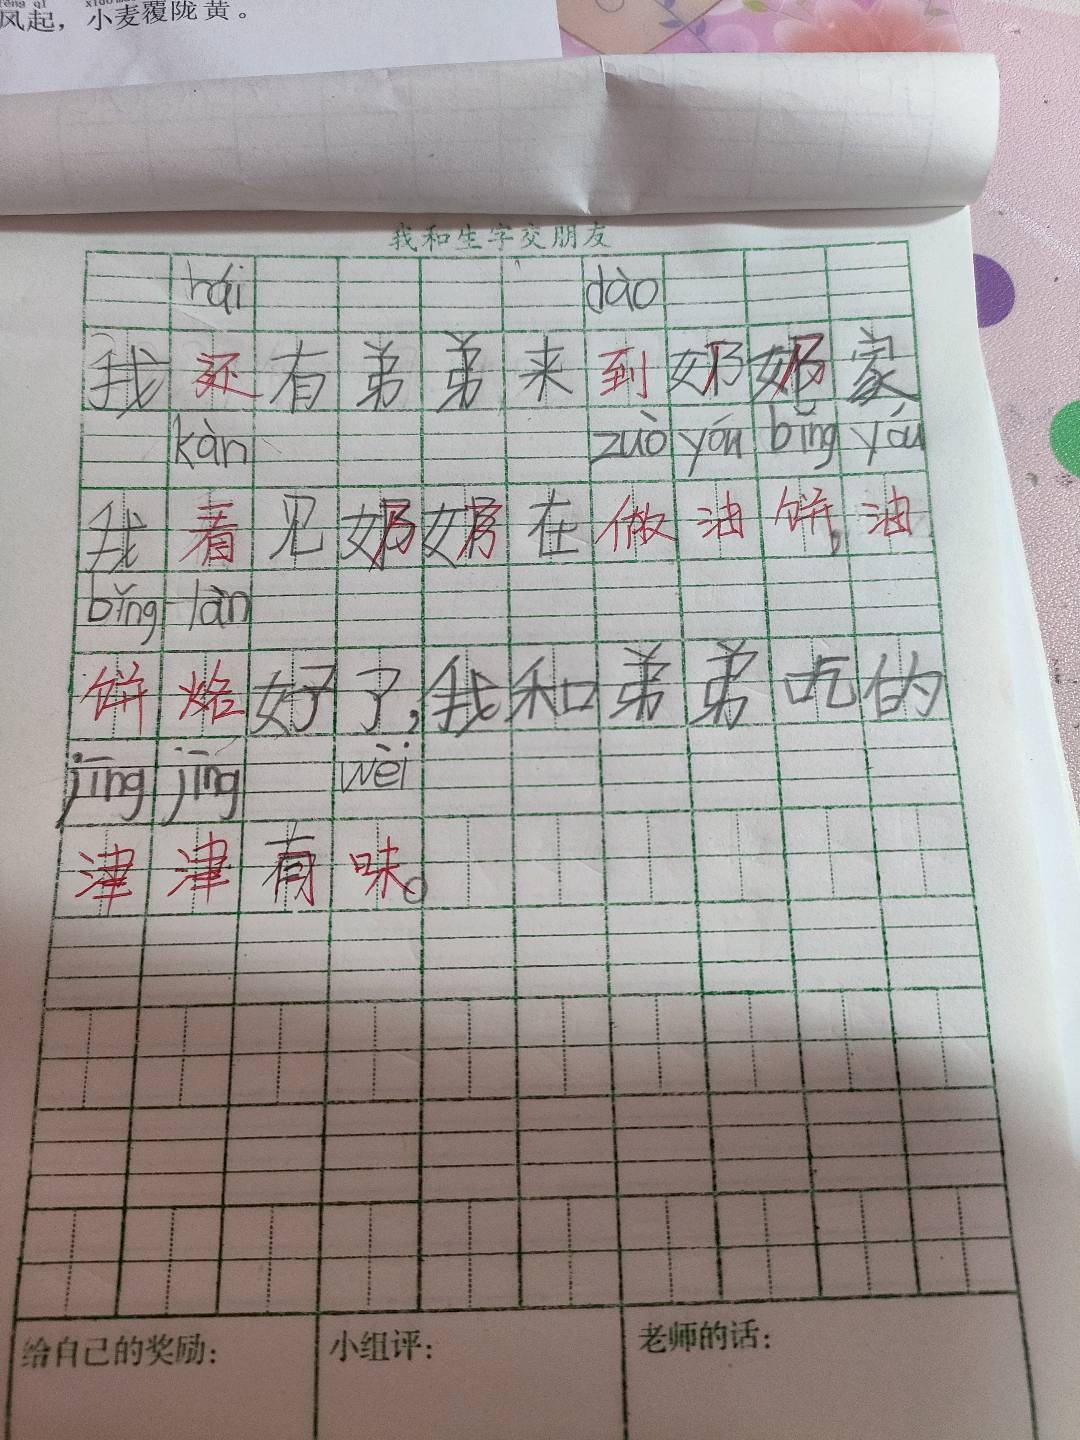 fēng qǐ xiǎo mài
风起，小麦覆陇黄。
我和生字交朋友
hái dào
我还有弟弟来到奶奶家
kàn zuò yóu bǐng yóu
我着见奶奶在做油饼，油
bǐng làn
饼烙好了，我和弟弟吃的
jīng jīng wèi
津津有味。
给自己的奖励：
小组评：
老师的话：